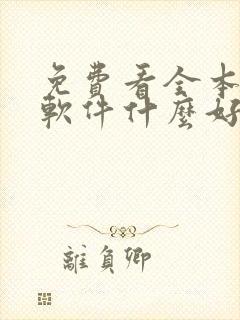 免費看全本
軟件什麼好
離負卿